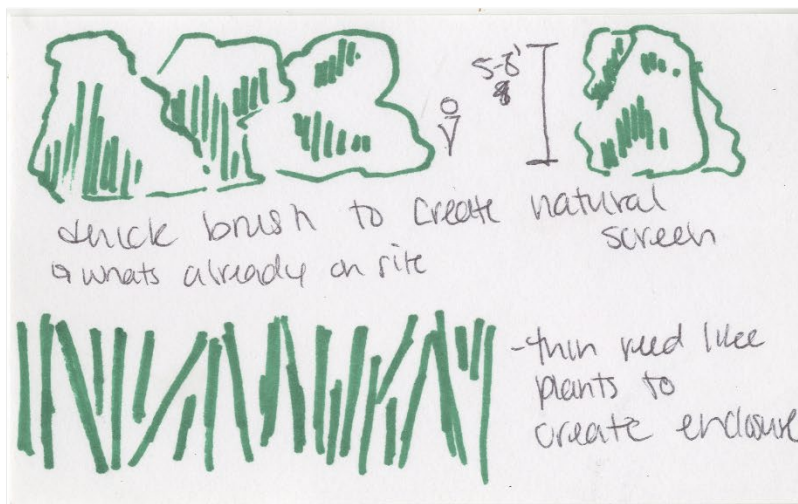 5-8'
8
thick brush to create natural
screen
↳ whats already on site
-thin reed like
plants to
create enclosure